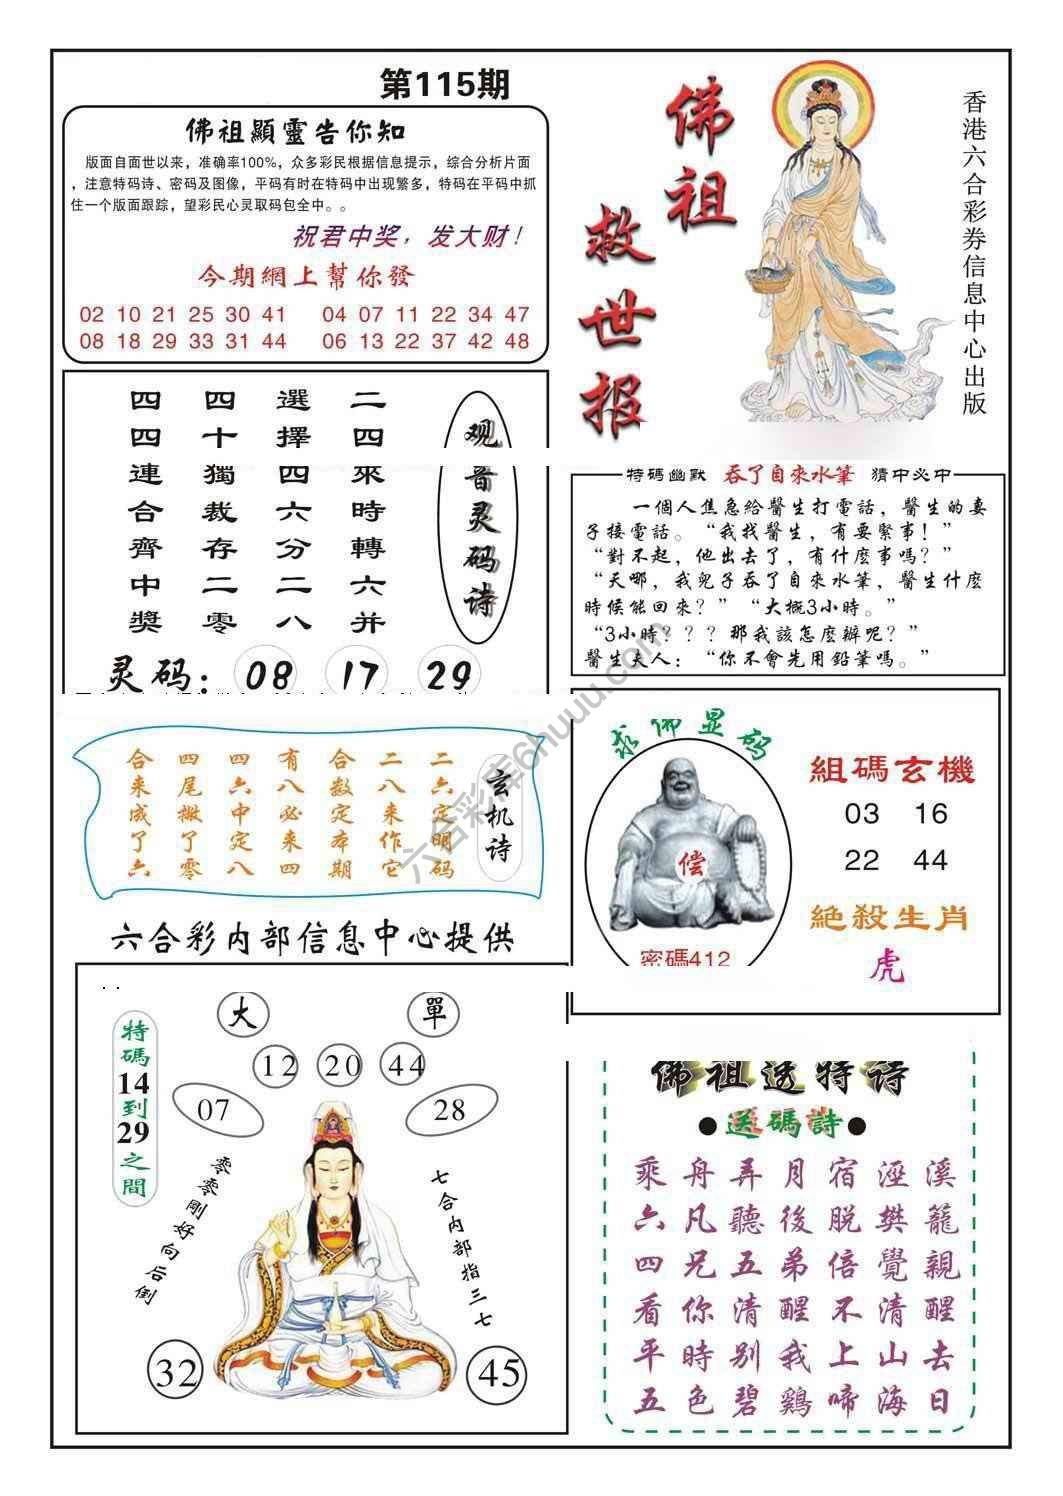 第115期
佛祖顯靈告你知
版面自面世以来，准确率100%，众多彩民根据信息提示，综合分析片面
，注意特码诗、密码及图像，平码有时在特码中出现繁多，特码在平码中抓
住一个版面跟踪，望彩民心灵取码包全中。。
祝君中奖，发大财！
今期網上幫你發
02 10 21 25 30 41 04 07 11 22 34 47
08 18 29 33 31 44 06 13 22 37 42 48
佛祖
救世报
香港六合彩券信息中心出版
观音灵码诗
二四來時轉六并
選擇四六分二八
四十獨裁存二零
四四連合齊中獎
灵码：08 17 29
特碼幽默 吞了自來水筆 猜中必中
一個人焦急給醫生打電話，醫生的妻
子接電話。“我找醫生，有要緊事！”
“對不起，他出去了，有什麼事嗎？”
“天哪，我兒子吞了自來水筆，醫生什麼
時候能回來？”“大概3小時。”
“3小時？？？那我該怎麼辦呢？”
醫生夫人：“你不會先用鉛筆嗎。”
玄机诗
二六定明码
二八来作它
合数定本期
有八必来四
四六中定八
四尾撇了零
合来成了六
求佛显码
偿
密碼412
組碼玄機
03 16
22 44
絕殺生肖
虎
六合彩内部信息中心提供
特碼14到29之間
大 單
12 20 44
07 28
零零剛好向后倒
七合内部指三七
32 45
佛祖透特诗
●送碼詩●
乘舟弄月宿涇溪
六凡聽後脱樊籠
四兄五弟倍覺親
看你清醒不清醒
平時别我上山去
五色碧鷄啼海日
六合彩库6huuu.com